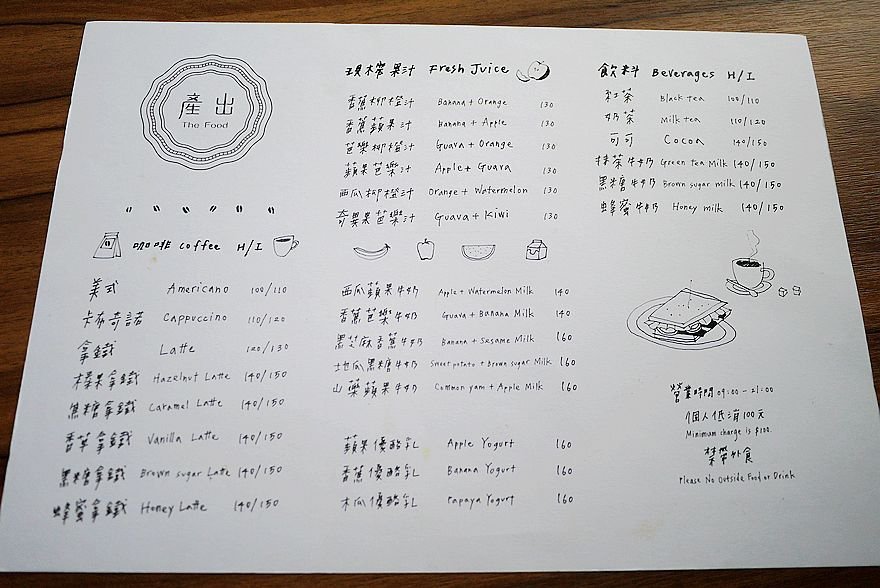 產出
The Food
咖啡 Coffee H/I
美式 Americano 100/110
卡布奇諾 Cappuccino 110/120
拿鐵 Latte 120/130
榛果拿鐵 Hazelnut Latte 140/150
焦糖拿鐵 Caramel Latte 140/150
香草拿鐵 Vanilla Latte 140/150
黑糖拿鐵 Brown sugar Latte 140/150
蜂蜜拿鐵 Honey Latte 140/150
現榨果汁 Fresh Juice
香蕉柳橙汁 Banana + Orange 130
香蕉蘋果汁 Banana + Apple 130
芭樂柳橙汁 Guava + Orange 130
蘋果芭樂汁 Apple + Guava 130
西瓜柳橙汁 Orange + Watermelon 130
奇異果芭樂汁 Guava + Kiwi 130
西瓜蘋果牛奶 Apple + Watermelon Milk 140
香蕉芭樂牛奶 Guava + Banana Milk 140
黑芝麻香蕉牛奶 Banana + Sesame Milk 160
地瓜黑糖牛奶 Sweet potato + Brown sugar Milk 160
山藥蘋果牛奶 Common yam + Apple Milk 160
蘋果優酪乳 Apple Yogurt 160
香蕉優酪乳 Banana Yogurt 160
木瓜優酪乳 Papaya Yogurt 160
飲料 Beverages H/I
紅茶 Black tea 100/110
奶茶 Milk tea 110/120
可可 Cocoa 140/150
抹茶牛奶 Green tea Milk 140/150
黑糖牛奶 Brown sugar milk 140/150
蜂蜜牛奶 Honey milk 140/150
營業時間 09:00 - 21:00
個人低消100元
Minimum charge is $100.
禁帶外食
Please No Outside Food or Drink